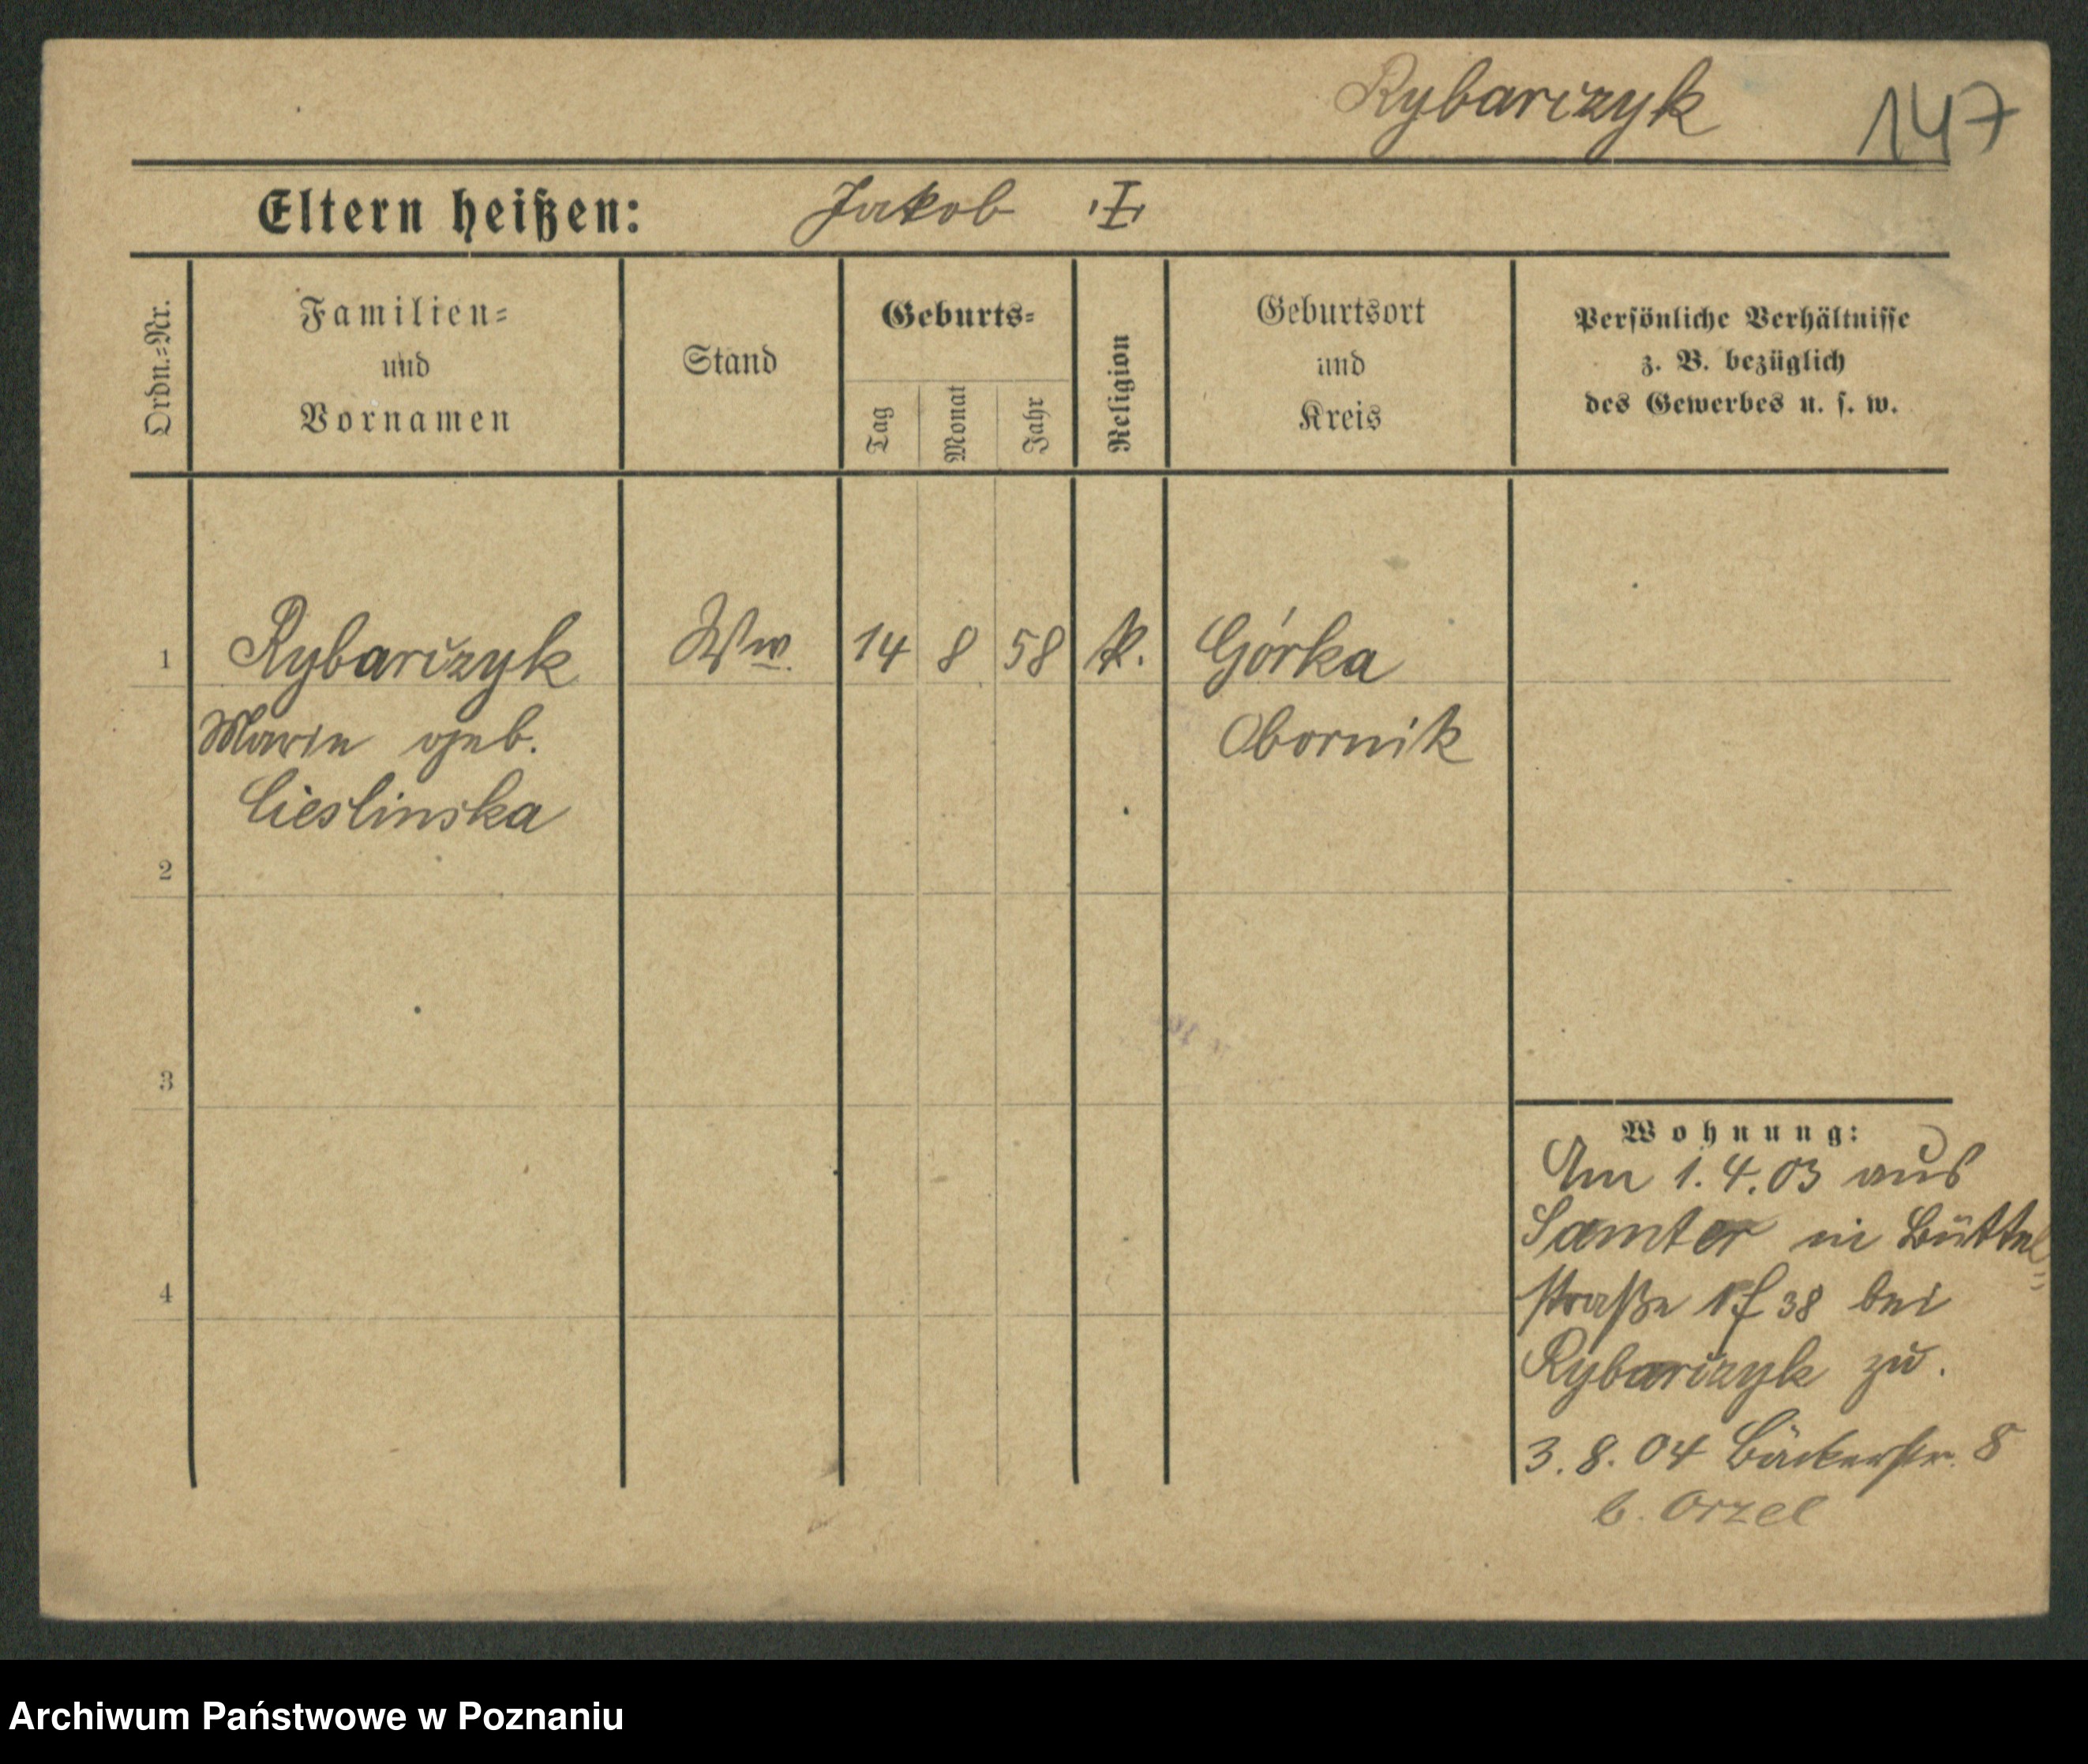 Rybarczyk 147
Eltern heißen: Jakob
Ordn.-Nr.
Familien-
und
Vornamen
Stand
Geburts-
Tag
Monat
Jahr
Religion
Geburtsort
und
Kreis
Persönliche Verhältnisse
z. B. bezüglich
des Gewerbes u. s. w.
1 Rybarczyk Ww. 14 8 58 k. Górka
Marie geb. Obornik
Cieslinska
2
3
4
Wohnung:
Am 1.4.03 aus
Samter in Büttel-
straße 38 bei
Rybarczyk zu.
3.8.04 Bäckerstr. 8
b. Orzel
Archiwum Państwowe w Poznaniu